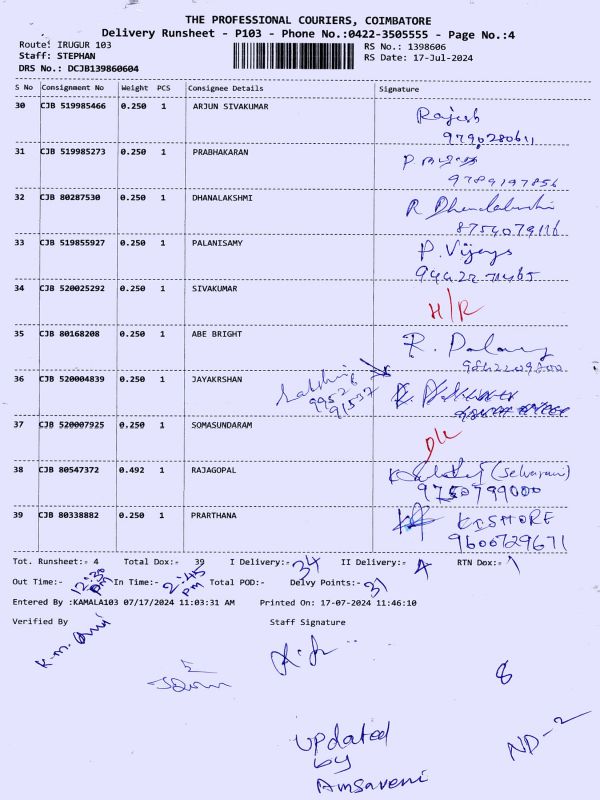 THE PROFESSIONAL COURIERS, COIMBATORE
Delivery Runsheet - P103 - Phone No.:0422-3505555 - Page No.:4
Route: IRUGUR 103
RS No.: 1398606
Staff: STEPHAN
RS Date: 17-Jul-2024
DRS No.: DCJB139860604
S No Consignment No Weight PCS Consignee Details Signature
30 CJB 519985466 0.250 1 ARJUN SIVAKUMAR Rajesh
9790280611
31 CJB 519985273 0.250 1 PRABHAKARAN
9789197856
32 CJB 80287530 0.250 1 DHANALAKSHMI R Dhanalakshmi
8754079116
33 CJB 519855927 0.250 1 PALANISAMY P. Vijaya
34 CJB 520025292 0.250 1 SIVAKUMAR H/R
35 CJB 80168208 0.250 1 ABE BRIGHT
9842209800
36 CJB 520004839 0.250 1 JAYAKRSHAN
99528
91537
37 CJB 520007925 0.250 1 SOMASUNDARAM D/L
38 CJB 80547372 0.492 1 RAJAGOPAL (Selvarani)
9750799000
39 CJB 80338882 0.250 1 PRARTHANA KISHORE
9600729671
Tot. Runsheet:- 4 Total Dox:- 39 I Delivery:- 34 II Delivery:- 4 RTN Dox:- 1
Out Time:- 12:30 pm In Time:- 2:45 pm Total POD:- Delvy Points:- 31
Entered By :KAMALA103 07/17/2024 11:03:31 AM Printed On: 17-07-2024 11:46:10
Verified By Staff Signature
8
Updated
by
Amsaveni
ND-2